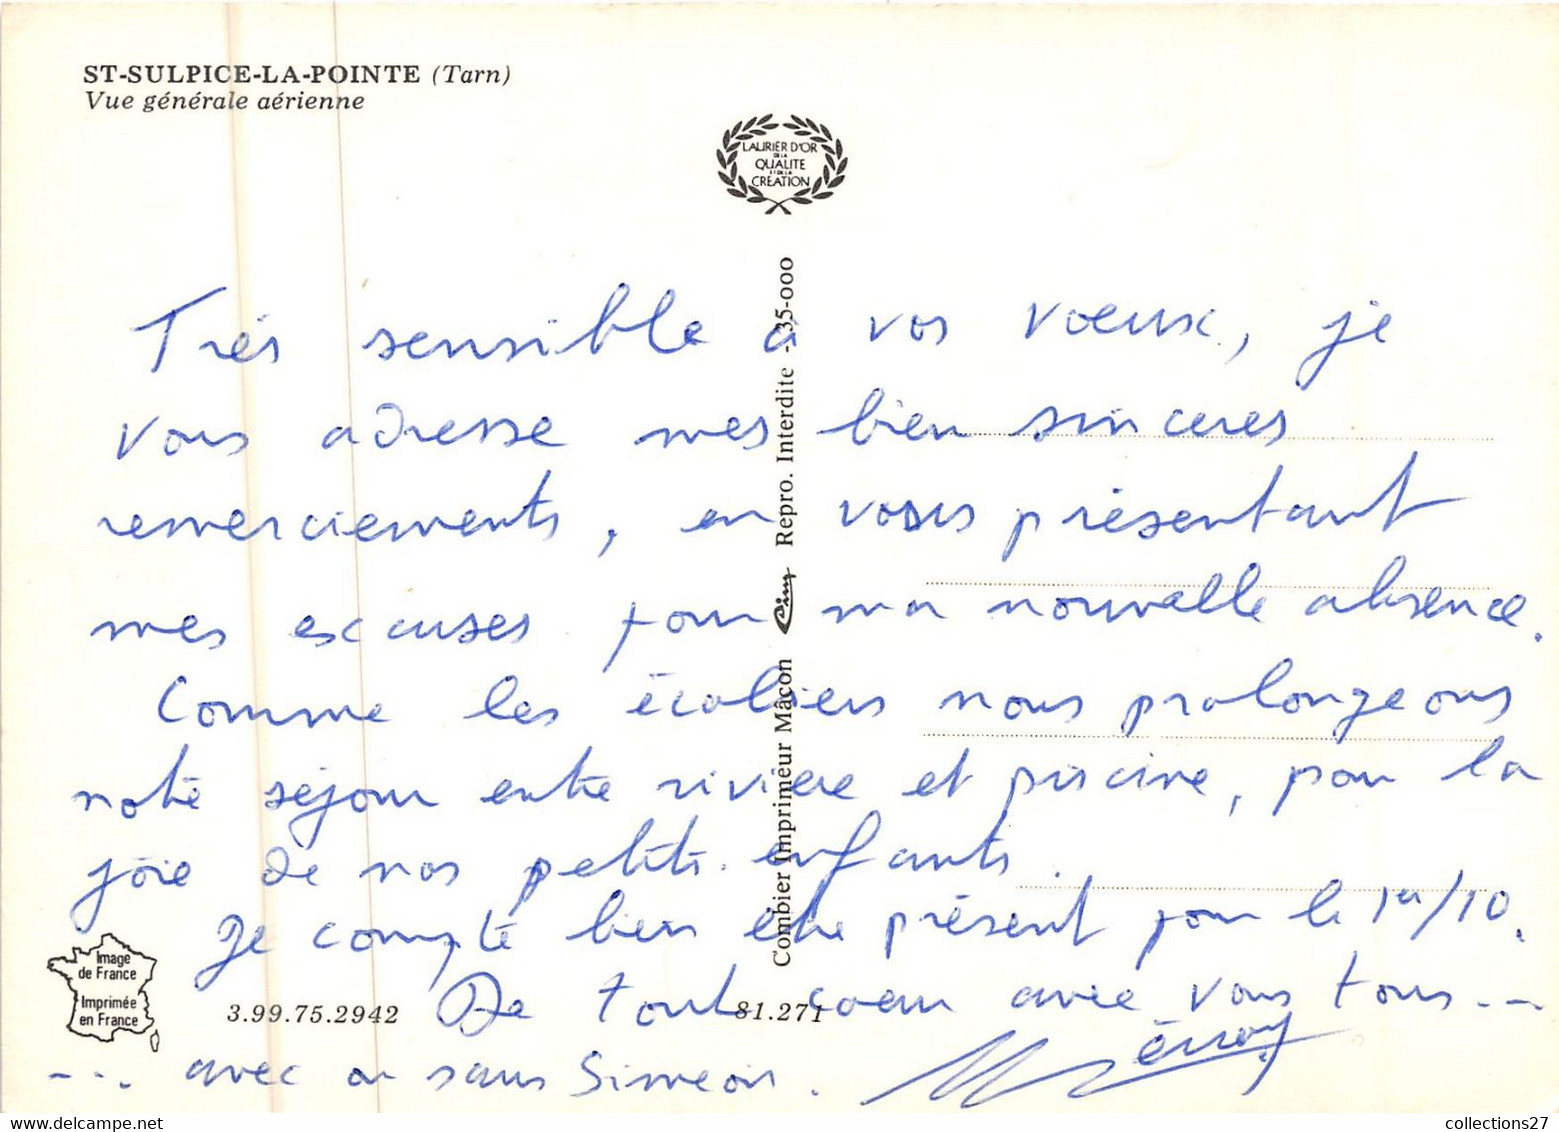 ST-SULPICE-LA-POINTE (Tarn)
Vue générale aérienne
LAURIER D'OR
DE LA
QUALITE
ET DE LA
CREATION
Très sensible à vos voeux, je
vous adresse mes bien sincères
remerciements, en vous présentant
mes excuses pour ma nouvelle absence.
Comme les écoliers nous prolongeons
notre séjour entre rivière et piscine, pour la
joie de nos petits enfants.
Je compte bien être présent pour le 1er/10.
De tout coeur avec vous tous ---
--- avec ou sans Simeon.
Combier Imprimeur Mâcon Cim Repro. Interdite - 35-000
Image
de France
Imprimée
en France
3.99.75.2942
81.271
collections27